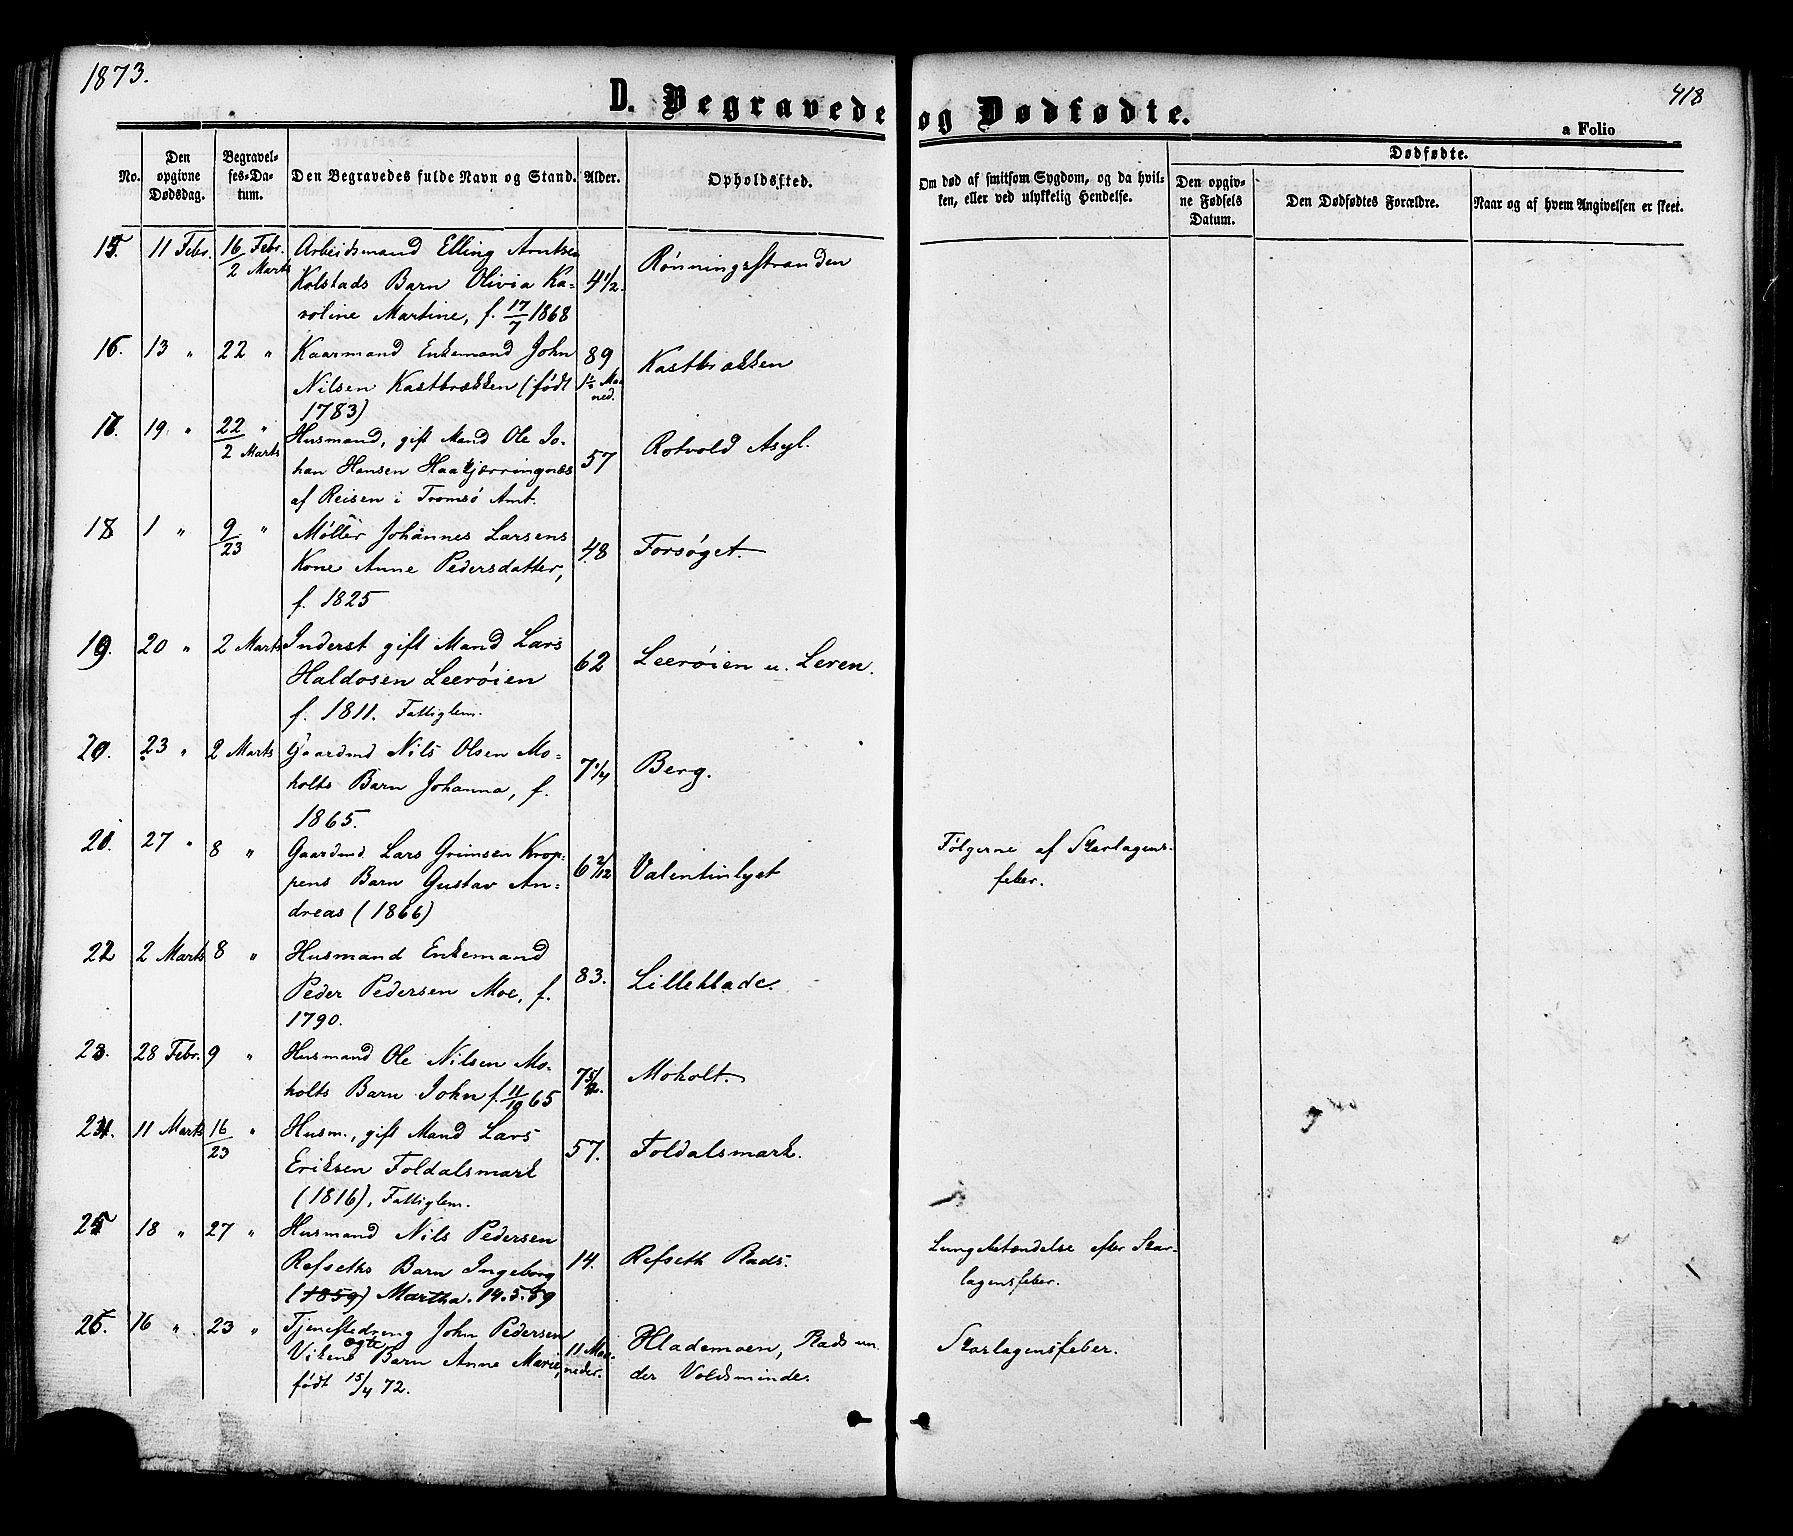 1873.
418
D. Begravede og Dødfødte.
a Folio
No.
Den opgivne Dødsdag.
Begravel-
ses-Da-
tum.
Den Begravedes fulde Navn og Stand.
Alder.
Opholdssted.
Om død af smitsom Sygdom, og da hvil-
ken, eller ved ulykkelig Hendelse.
Dødfødte.
Den opgiv-
ne Fødsels
Datum.
Den Dødfødtes Forældre.
Naar og af hvem Angivelsen er skeet.
15. 11 Febr. 16 Febr. / 2 Marts Arbeidsmand Elling Arntsen
Kolstads Barn Olivia Ka- 4 1/2. Rønningsstranden
roline Martine, f. 17/7 1868
16. 13 " 22 " Kaarmand Enkemand John 89 Kastbrækken
Nilsen Kastbrækken (født
1783)
19 " 22 " / 2 Marts Husmand, gift Mand Ole Jo-
han Hansen Haakjærringnæs 57 Rotvold Asyl.
af Reisen i Tromsø Amt.
18 1 " 9 / 23 " Møller Johannes Larsens
Kone Anne Pedersdatter, 48 Forsøget.
f. 1825
19. 20 " 2 Marts Inderst gift Mand Lars
Haldosen Leerøien 62 Leerøien u. Leren.
f. 1811. Fattiglem.
20. 23 " 2 Marts Gaardmd Nils Olsen Mo-
holts Barn Johanna, f. 7 1/4 Berg.
1865.
21. 27 " 8 " Gaardmd. Lars Grimsen Krop-
pens Barn Gustav An- 6 2/12 Valentinlyst Følgerne af Skarlagens-
feber.
dreas (1866)
22 2 Marts 8 " Husmand Enkemand
Peder Pedersen Moe, f. 83. Lillehlade.
1790.
23. 28 Febr. 9 " Husmand Ole Nilsen Mo-
holts Barn John f. 11/10 65 Moholt.
24. 11 Marts 16 / 23 " Husm., gift Mand Lars
Eriksen Foldalsmark 57. Foldalsmark.
(1816), Fattiglem.
25 18 " 27 " Husmand Nils Pedersen
Refseths Barn Ingeborg 14. Refseth Plads. Lungebetændelse efter Skar-
lagensfeber.
(1859) Martha. 14.5.59
16 " 23 " Tjenestedreng John Pedersen
Vikens ægte Barn Anne Marie, 11 Maa-
neder. Hlademoen, Plads un-
der Voldsminde. Skarlagensfeber.
født 15/4 72.